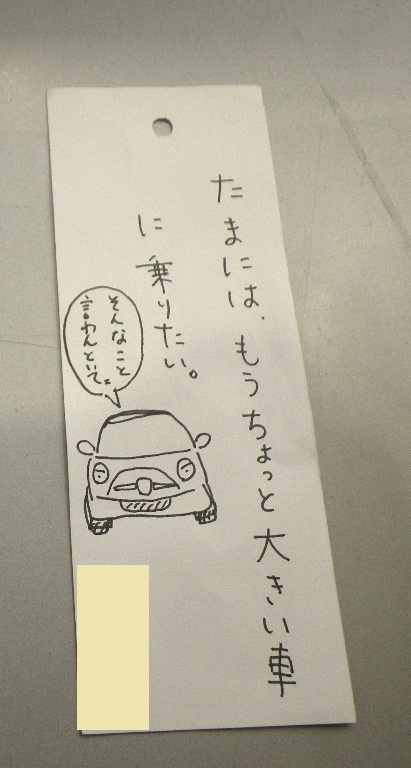 たまには、もうちょっと大きい車
に乗りたい。
そんなこと
言わんといて。